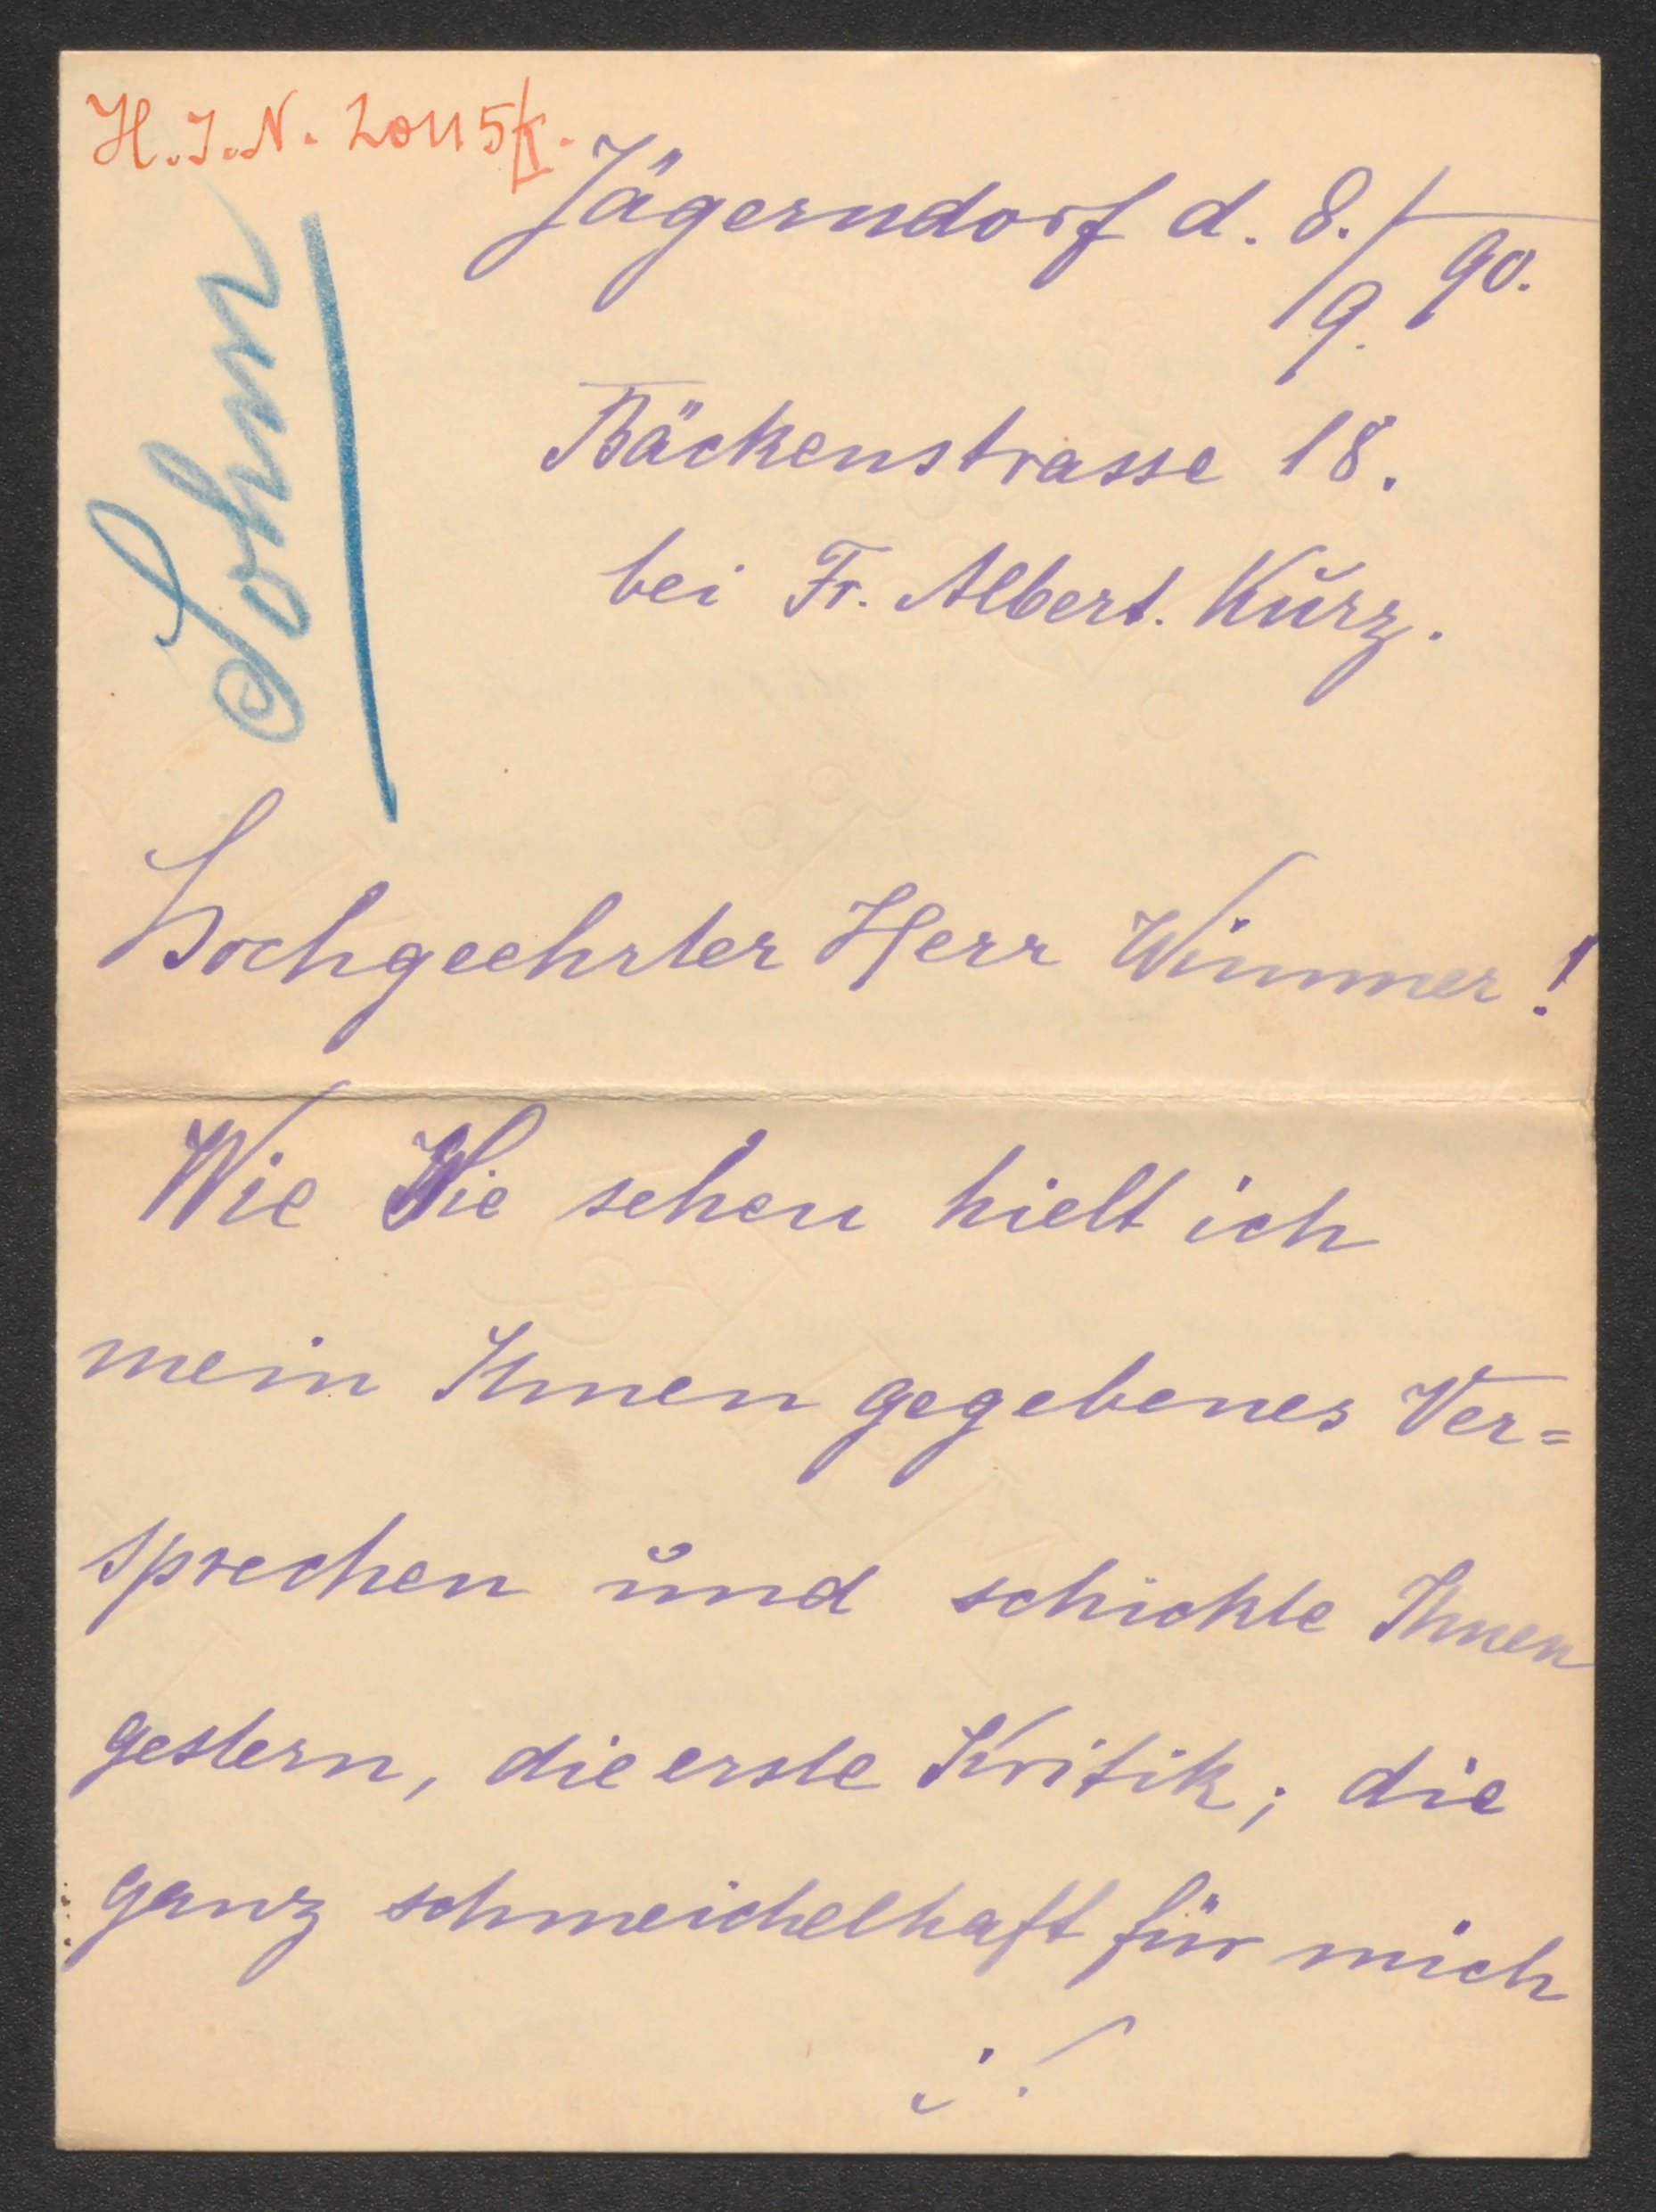 H.I.N. 20115
Sohm
Jägerndorf d. 8./9. 90.
Bäckenstrasse 18.
bei Fr. Albert. Kurz.
Hochgeehrter Herr Wimmer!
Wie Sie sehen hielt ich
mein Ihnen gegebenes Ver=
sprechen und schickte Ihnen
gestern, die erste Kritik; die
ganz schmeichelhaft für mich